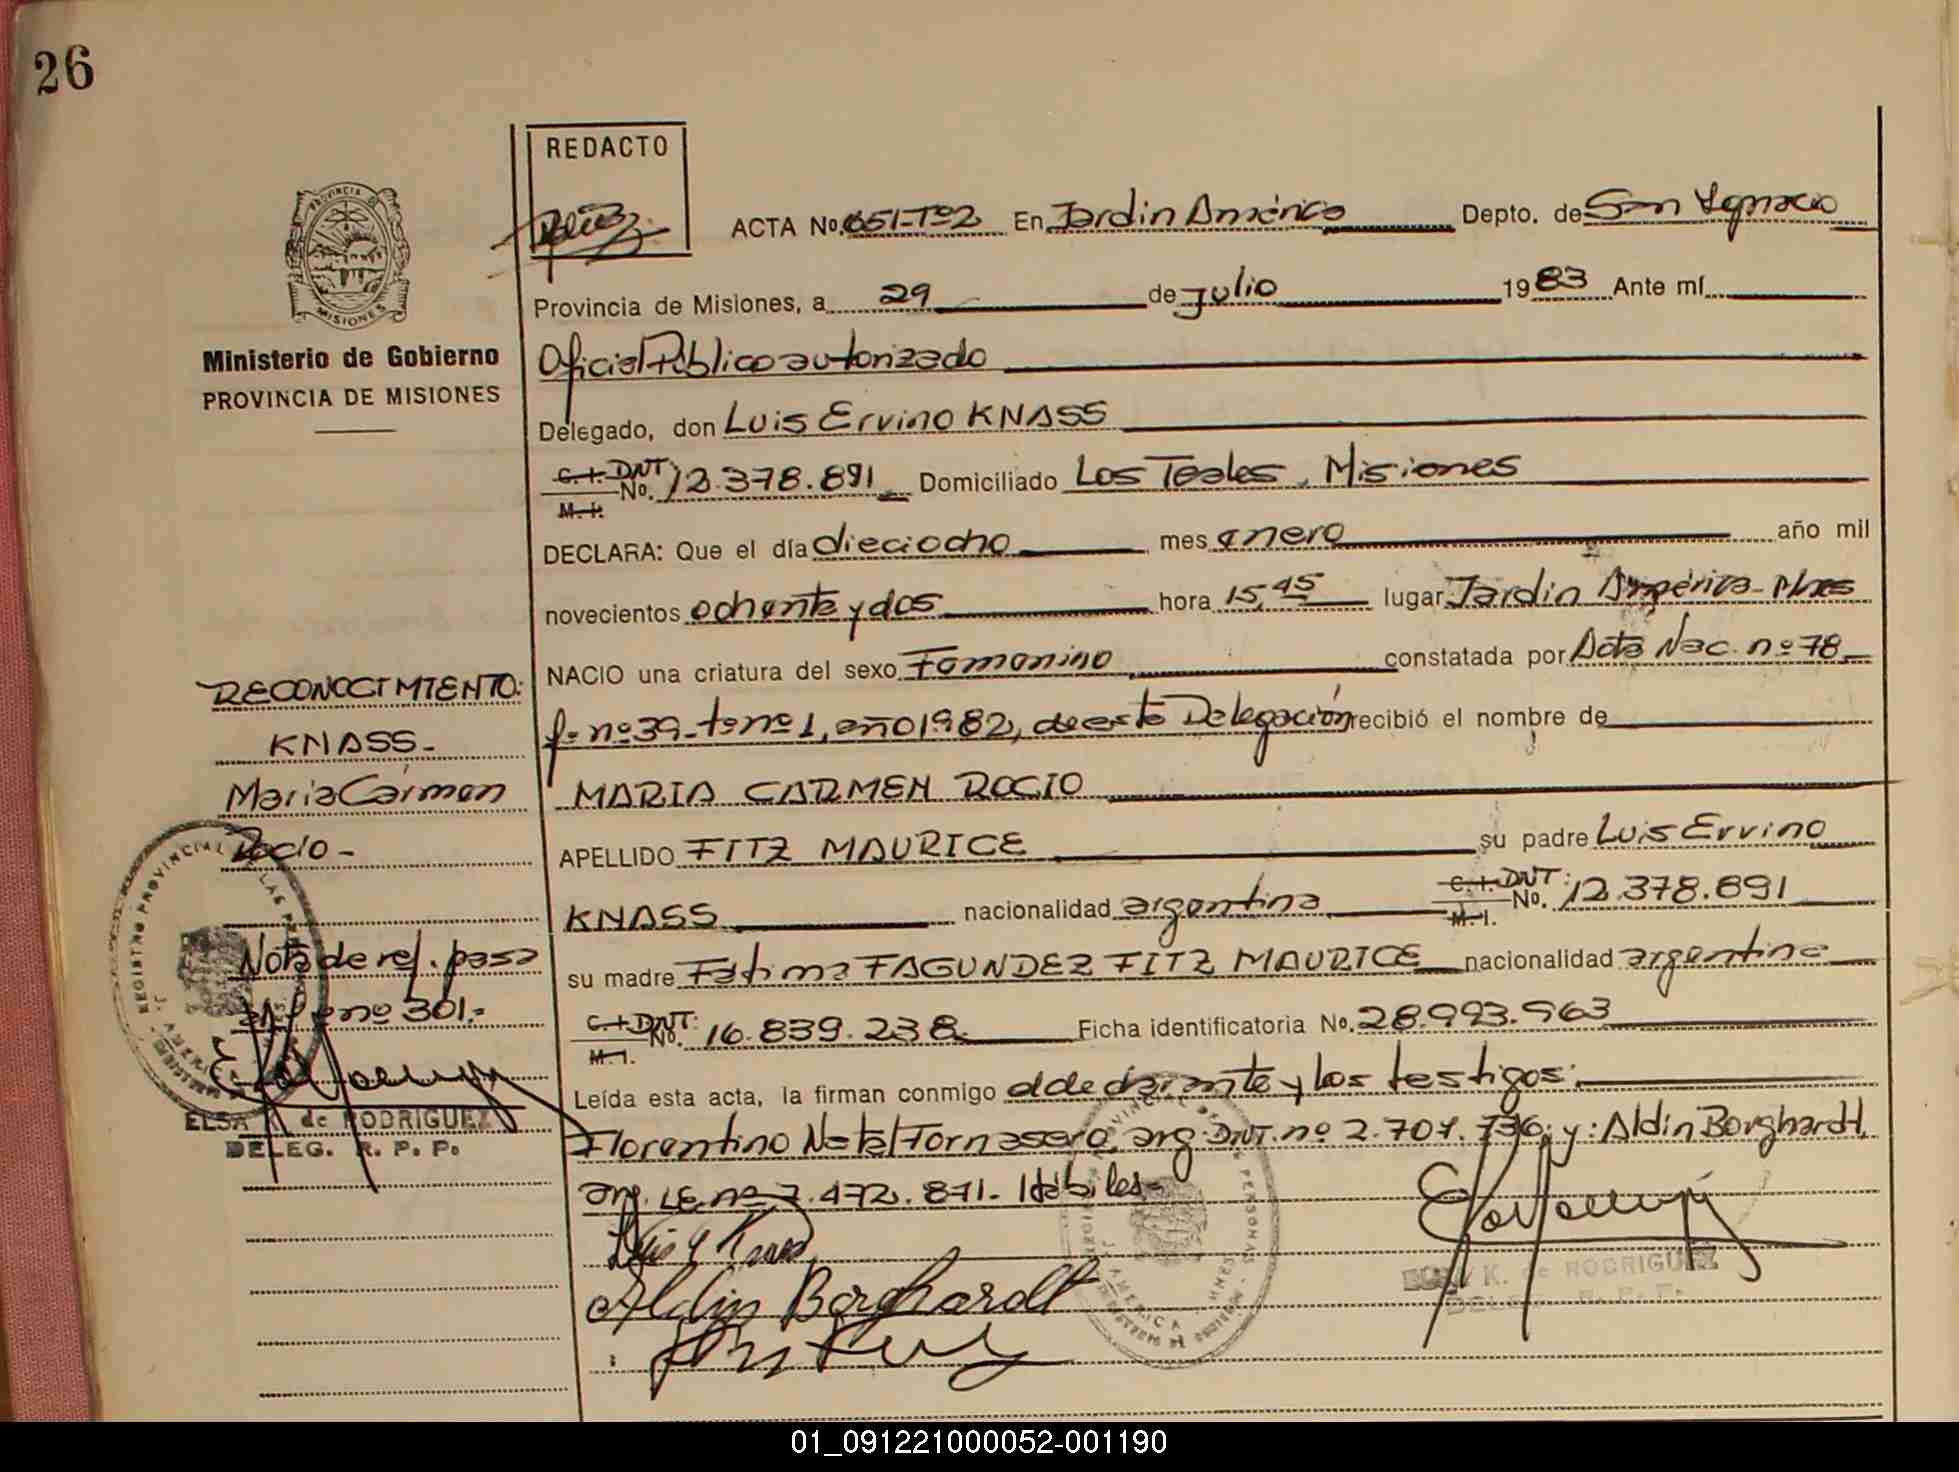 26
REDACTO
PROVINCIA
MISIONES
Ministerio de Gobierno
PROVINCIA DE MISIONES
ACTA No. 651-Tº2 En Jardin América Depto. de San Ignacio
Provincia de Misiones, a 29 de Julio 1983 Ante mí
Oficial Público autorizado
Delegado, don Luis Ervino KNASS
C.I. DNI M.I. No. 12.378.891 Domiciliado Los Teales, Misiones
DECLARA: Que el día dieciocho mes enero año mil
novecientos ochenta y dos hora 15,45 lugar Jardin América-Mnes
NACIO una criatura del sexo Femenino constatada por Acta Nac. nº 78
fº nº 39-tº nº 1, año 1982, de esta Delegación recibió el nombre de
MARIA CARMEN ROCIO
APELLIDO FITZ MAURICE su padre Luis Ervino
KNASS nacionalidad argentina C.I. DNI: M.I. No. 12.378.891
su madre Fátima FAGUNDEZ FITZ MAURICE nacionalidad argentina
C.I. DNI: M.I. No. 16.839.238 Ficha identificatoria No. 28.993.963
Leída esta acta, la firman conmigo el declarante y los testigos:
Florentino Natal Tornasero, arg. DNI. nº 2.701.736; y: Aldin Borghardt,
arg. LE nº 7.472.871- Hábiles-
Aldin Borghardt
K. de RODRIGUEZ
DELEG. R. P. P.
RECONOCIMIENTO:
KNASS-
Maria Carmen
Rocio-
Nota de ref. pasa
al fº nº 301.-
ELSA K. de RODRIGUEZ
DELEG. R. P. P.
01_091221000052-001190